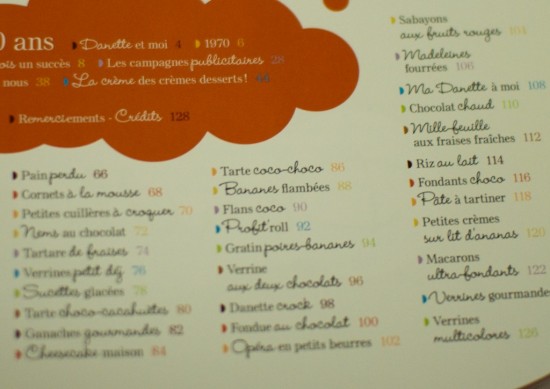 0 ans
Danette et moi 4
1970 6
ois un succès 8
Les campagnes publicitaires 28
nous 38
La crème des crèmes desserts! 66
Remerciements - Crédits 128
Pain perdu 66
Cornets à la mousse 68
Petites cuillères à croquer 70
Nems au chocolat 72
Tartare de fraises 74
Verrines petit déj 76
Sucettes glacées 78
Tarte choco-cacahuètes 80
Ganaches gourmandes 82
Cheesecake maison 84
Tarte coco-choco 86
Bananes flambées 88
Flans coco 90
Profit'roll 92
Gratin poires-bananes 94
Verrine
aux deux chocolats 96
Danette crock 98
Fondue au chocolat 100
Opéra en petits beurres 102
Sabayons
aux fruits rouges 104
Madeleines
fourrées 106
Ma Danette à moi 108
Chocolat chaud 110
Mille-feuille
aux fraises fraîches 112
Riz au lait 114
Fondants choco 116
Pâte à tartiner 118
Petites crèmes
sur lit d'ananas 120
Macarons
ultra-fondants 122
Verrines gourmande
Verrines
multicolores 126